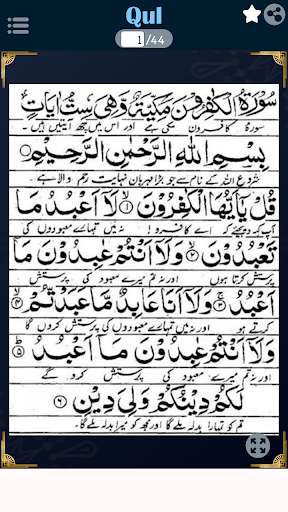 Qul
1/44
سُوْرَةُ الْكٰفِرُوْنَ مَكِّيَّةٌ وَّهِيَ سِتُّ اٰيَاتٍ
سورۃ کافرون مکی ہے اور اس میں چھ آیتیں ہیں
بِسْمِ اللهِ الرَّحْمٰنِ الرَّحِيْمِ
شروع اللہ کے نام سے جو بڑا مہربان نہایت رحم والا ہے
قُلْ يٰٓاَيُّهَا الْكٰفِرُوْنَ ۝١ لَآ اَعْبُدُ مَا
آپ کہہ دیجئے کہ اے کافرو! نہ میں تمہارے معبودوں کی
تَعْبُدُوْنَ ۝٢ وَلَآ اَنْتُمْ عٰبِدُوْنَ مَآ
پرستش کرتا ہوں اور نہ تم میرے معبود کی پرستش
اَعْبُدُ ۝٣ وَلَآ اَنَا عَابِدٌ مَّا عَبَدْتُّمْ ۝٤
کرتے ہو اور نہ میں تمہارے معبودوں کی پرستش کروں گا
وَلَآ اَنْتُمْ عٰبِدُوْنَ مَآ اَعْبُدُ ۝٥
اور نہ تم میرے معبود کی پرستش کرو گے
لَكُمْ دِيْنُكُمْ وَلِيَ دِيْنِ ۝٦
تم کو تمہارا بدلہ ملے گا اور مجھ کو میرا بدلہ ملے گا